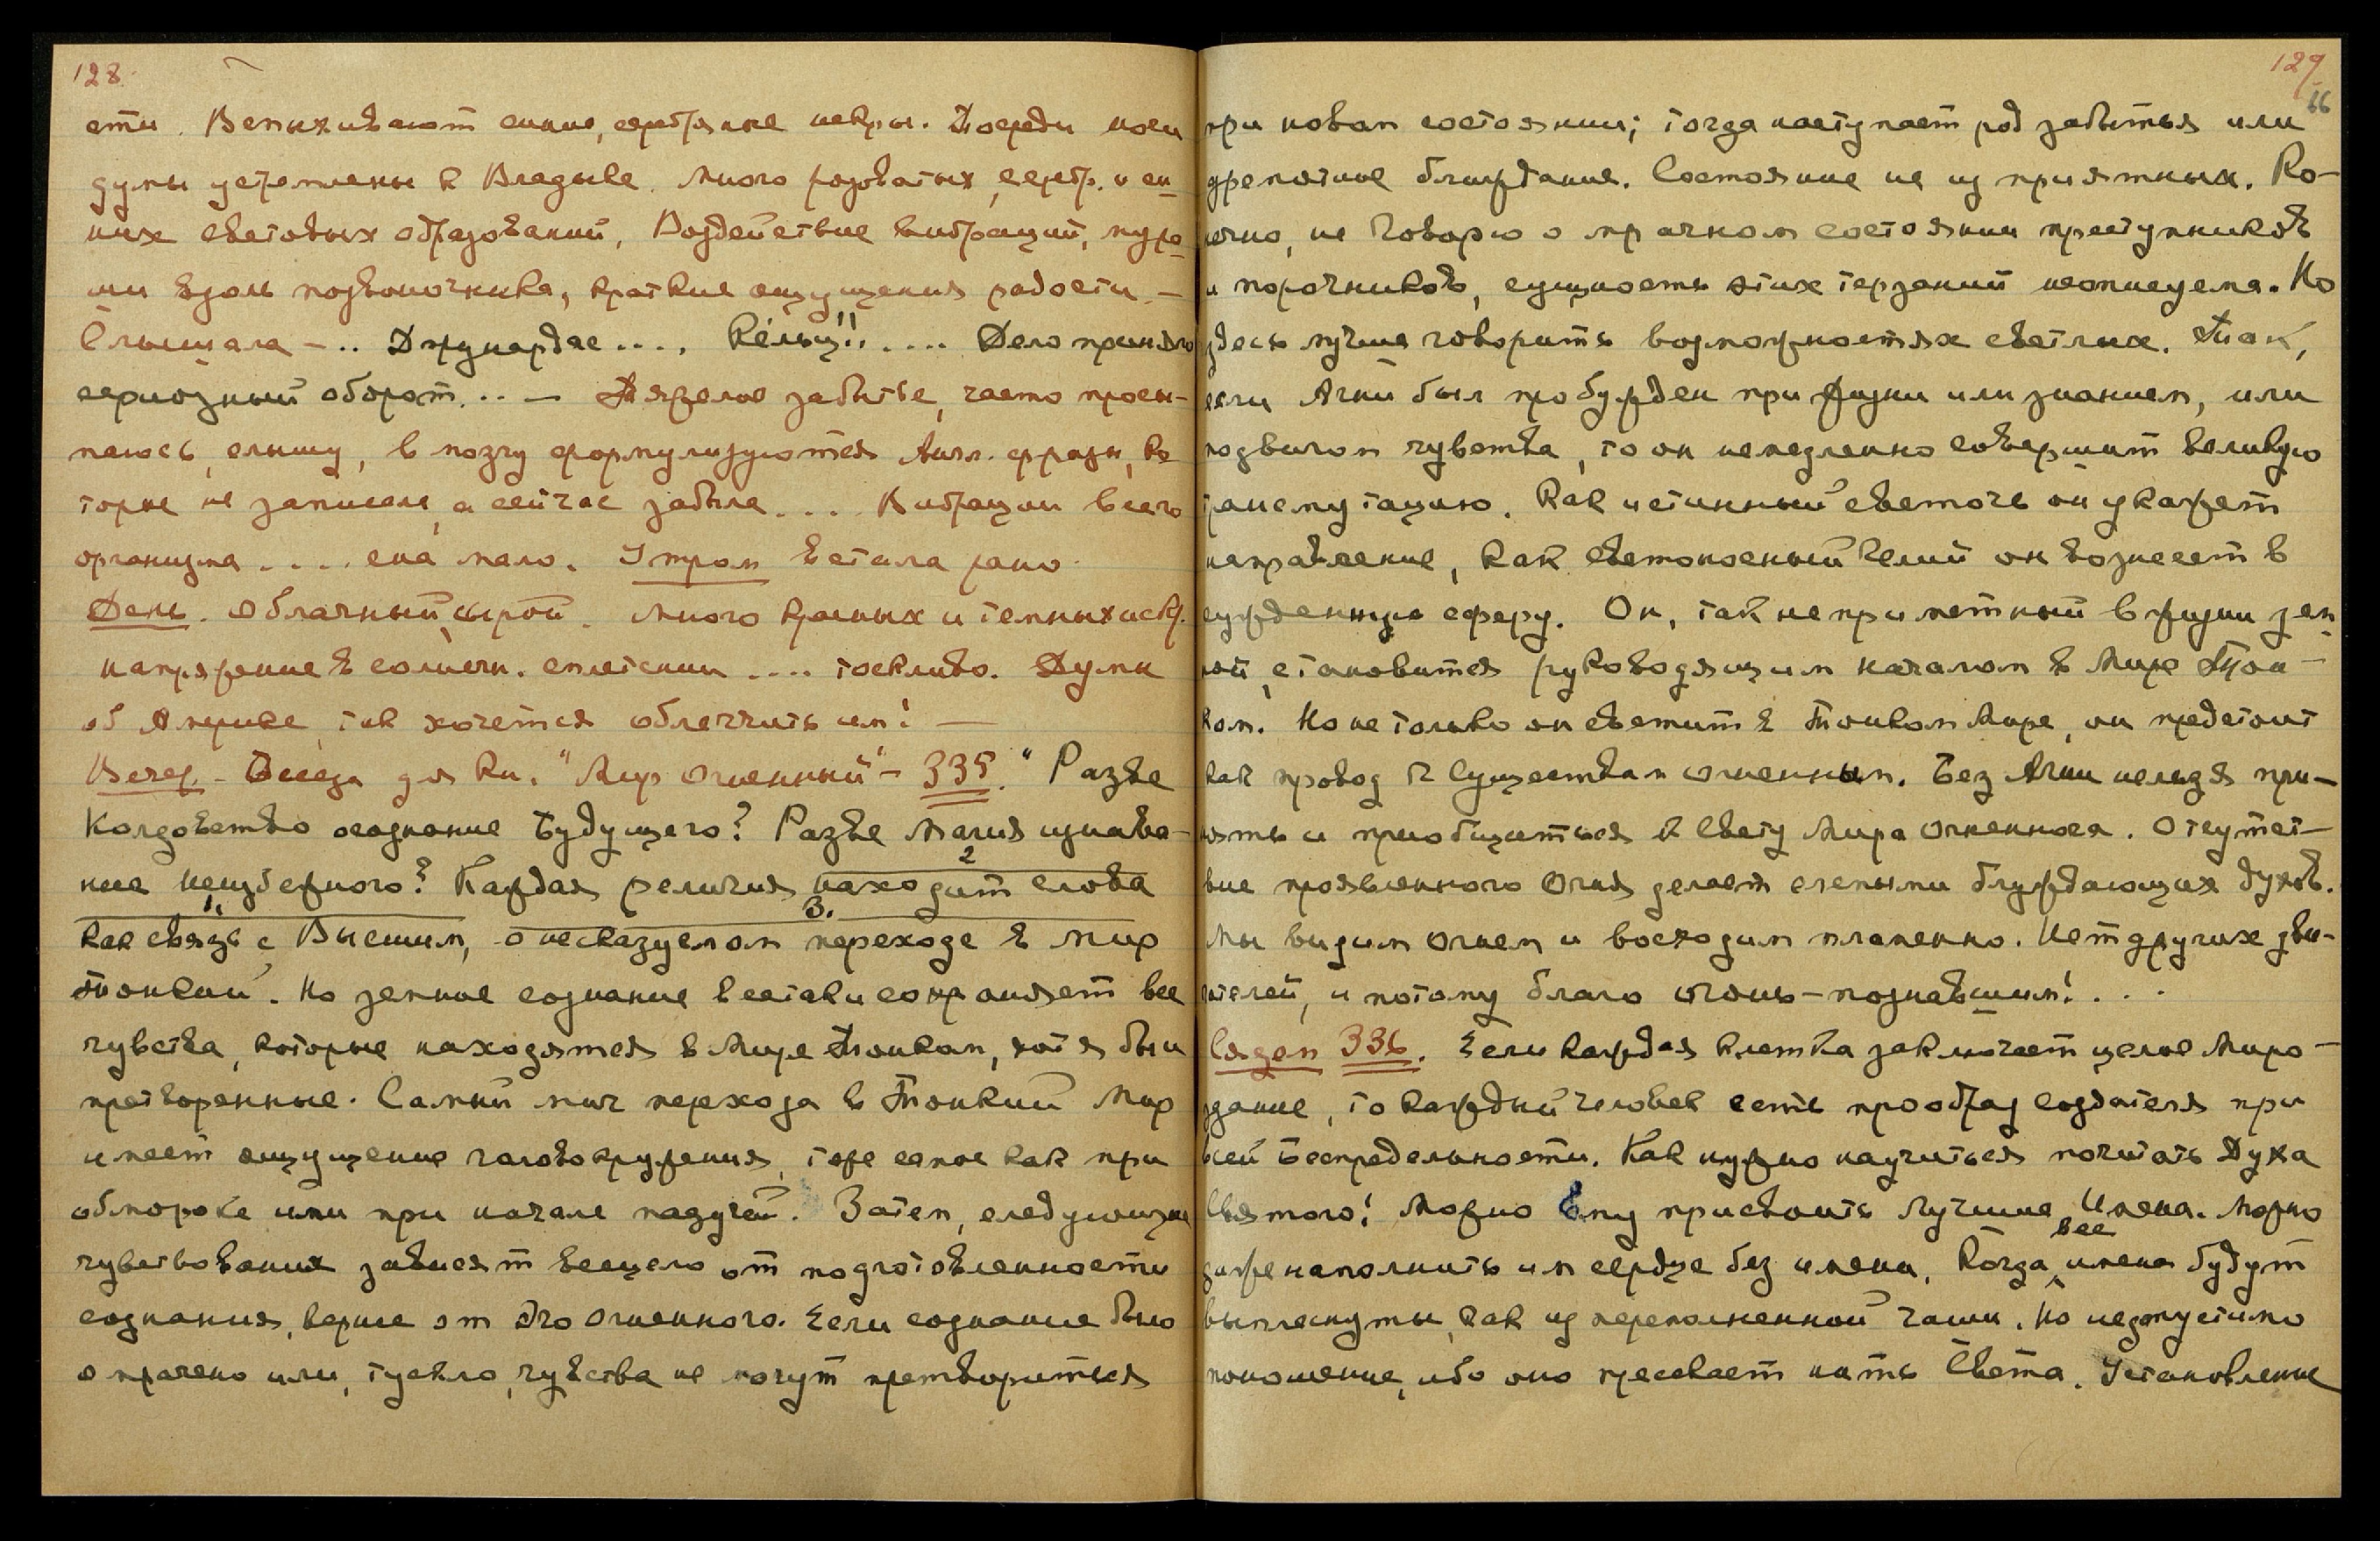 128.
сти. Вспыхивают синие, серебряные искры. Посреди ночи
думы устремлены к Владыке. Много розоватых, серебр. и си-
них световых образований. Воздействие вибраций, мура-
ши вдоль позвоночника, краткие ощущения радости. —
Слышала — .. Джунардас .... Кельц!! .... Дело приняло
сериозный оборот ... — Тяжелое забытье, часто просы-
паюсь, слышу, в мозгу формулизуются Англ. фразы, ко
торые не записала, а сейчас забыла .... Вибрации всего
организма .... сна мало. Утром встала рано.
День. Облачный, сырой. Много красных и темных искр.
напряжение в солнечн. сплетении .... тоскливо. Думы
об Америке, так хочется облегчить им! —
Вечер — Беседа для Кн. "Мир Огненный" — 335. "Разве
Колдовство осознание Будущего? Разве Магия узнава-
ние Неизбежного? Каждая религия находит слова 2
1. как связь с Высшим, 3. о несказуемом переходе в мир
Тонкий. Но земное сознание всетаки сохраняет все
чувства, которые находятся в Мире Тонком, хотя бы и
претворенные. Самый миг перехода в Тонкий Мир
имеет ощущение головокружения, тоже самое как при
обмороке или при начале падучей. Затем, следующие
чувствования зависят всецело от подготовленности
сознания, вернее от Эго Огненного. Если сознание было
омрачено или, тускло, чувства не могут претвориться
129
66
при новом состоянии; тогда наступает род забытья или
дремотное блуждание. Состояние не из приятных. Ко-
нечно, не Говорю о мрачном состоянии преступников
и порочников, сущность этих терзаний неописуема. Но
здесь лучше говорить возможностях светлых. Так,
если Агни был пробужден при жизни или знанием, или
подвигом чувства, то он немедленно совершит великую
трансмутацию. Как истинный светоч он укажет
направление, как светоносный Гелий он вознесет в
сужденную сферу. Он, так неприметный в жизни зем
ной, становится руководящим началом в Мире Тон-
ком. Но не только он светит в Тонком Мире, он предстоит
как провод к Существам огненным. Без Агни нельзя при-
нять и приобщиться к Свету Мира Огненного. Отсутст-
вие проявленного Огня делает слепыми блуждающих духов.
Мы видим Огнем и восходим пламенно. Нет других дви-
гателей, и потому благо огонь-познавшим! . . .
Садем 336. Если каждая клетка заключает целое Миро-
здание, то каждый человек есть прообраз создателя при
всей Беспредельности. Как нужно научиться почитать Духа
Святого! Можно Ему присвоить Лучшие Имена. Можно
даже наполнить им сердце без имени, Когда все имена будут
выплеснуты, как из переполненной чаши. Но недопустимо
поношение, ибо оно пресекает нить Света. Установление